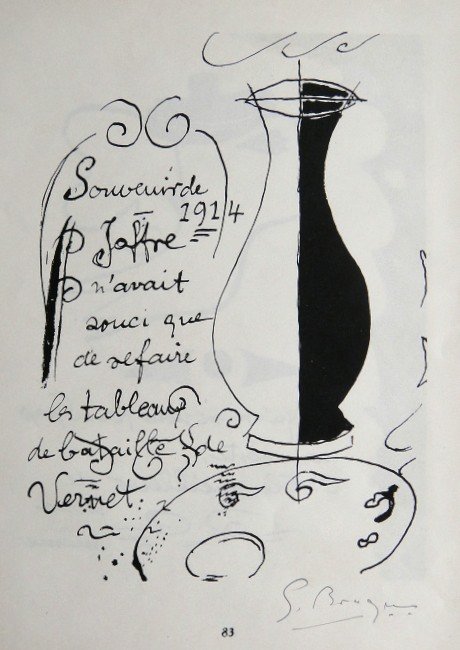 Souvenir de
1914
Joffre
n'avait
souci que
de refaire
les tableaux
de bataille de
Vernet.
G. Braque
83